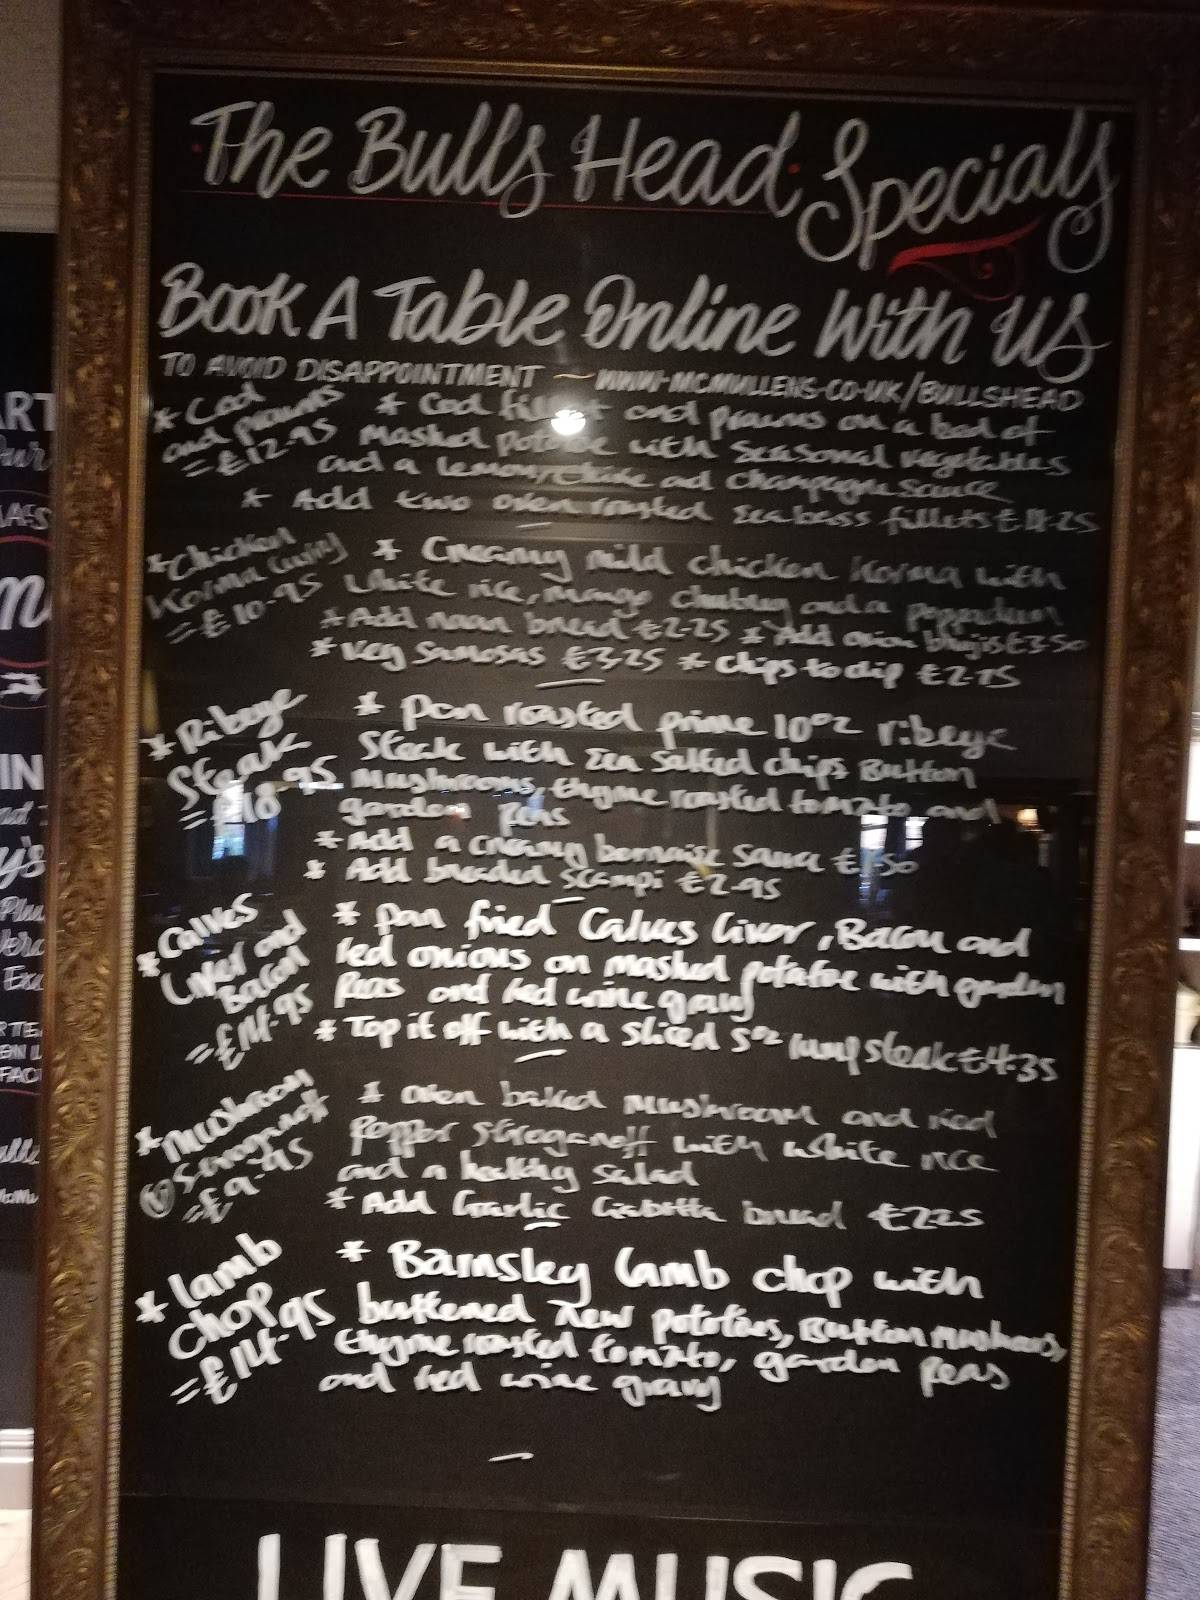 The Bulls Head Specials
Book A Table Online With Us
TO AVOID DISAPPOINTMENT ~ WWW.MCMULLENS.CO.UK/BULLSHEAD
* Cod and prawns = £12.95
* Cod fillet and prawns on a bed of
mashed potatoe with seasonal vegetables
and a lemon, chive and champagne sauce
* Add two oven roasted seabass fillets
* Chicken Korma (curry) = £10.95
* Creamy mild chicken korma with
white rice, mango chutney and a poppadum
* Add naan bread £2.25 * Add onion bhajis £3.50
* Veg samosas £3.25 * chips to dip
* Ribeye Steak = £18.95
* Pan roasted prime 10oz ribeye
steak with sea salted chips Button
mushrooms, thyme roasted tomato and
garden peas
* Add a creamy bernaise sauce £1.50
* Add breaded scampi £2.95
* Calves Liver and Bacon = £14.95
* Pan fried Calves Liver, Bacon and
red onions on mashed potatoe with garden
peas and red wine gravy
* Top it off with a sliced 5oz rump steak £4.35
* Mushroom Stroganoff (V) = £9.95
* Oven baked mushroom and red
pepper stroganoff with white rice
and a healthy salad
* Add Garlic Ciabatta bread £2.25
* Lamb Chop = £14.95
* Barnsley Lamb chop with
buttered new potatoes, Button mushrooms,
thyme roasted tomato, garden peas
and red wine gravy
LIVE MUSIC